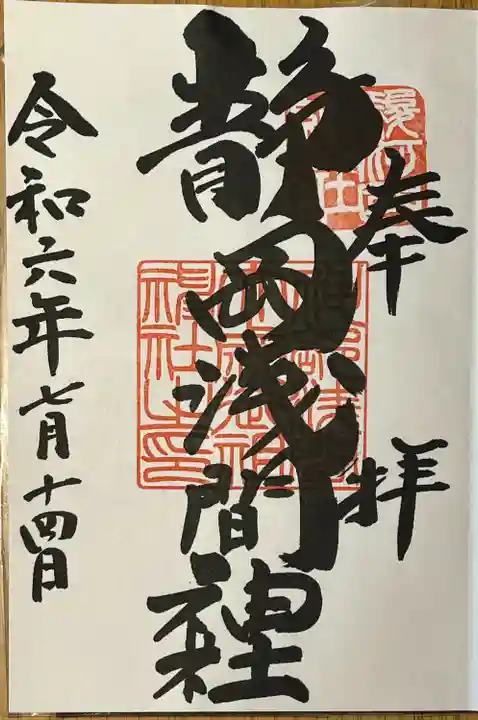 奉拝
静岡浅間社
神社之印
令和六年七月十四日